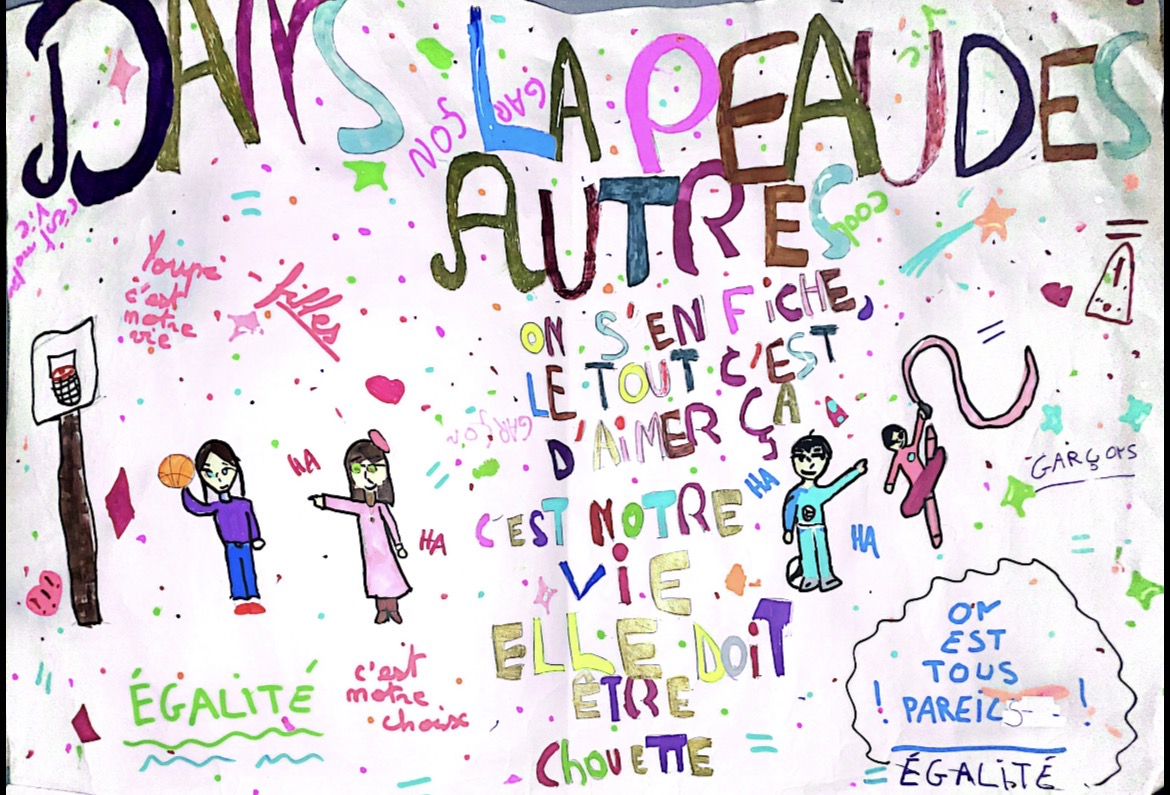 DANS LA PEAU DES
AUTRES
GARÇON
cool
Youpi
c'est
notre
vie
filles
ON S'EN FiCHE,
LE TOUT C'EST
D'AiMER ÇA
C'EST NOTRE
ViE
ELLE DOiT
ÊTRE
CHOUETTE
GARÇON
HA
HA
HA
HA
1
GARÇONS
ÉGALiTÉ
c'est
notre
choix
ON
EST
TOUS
! PAREILS !
= ÉGALiTÉ